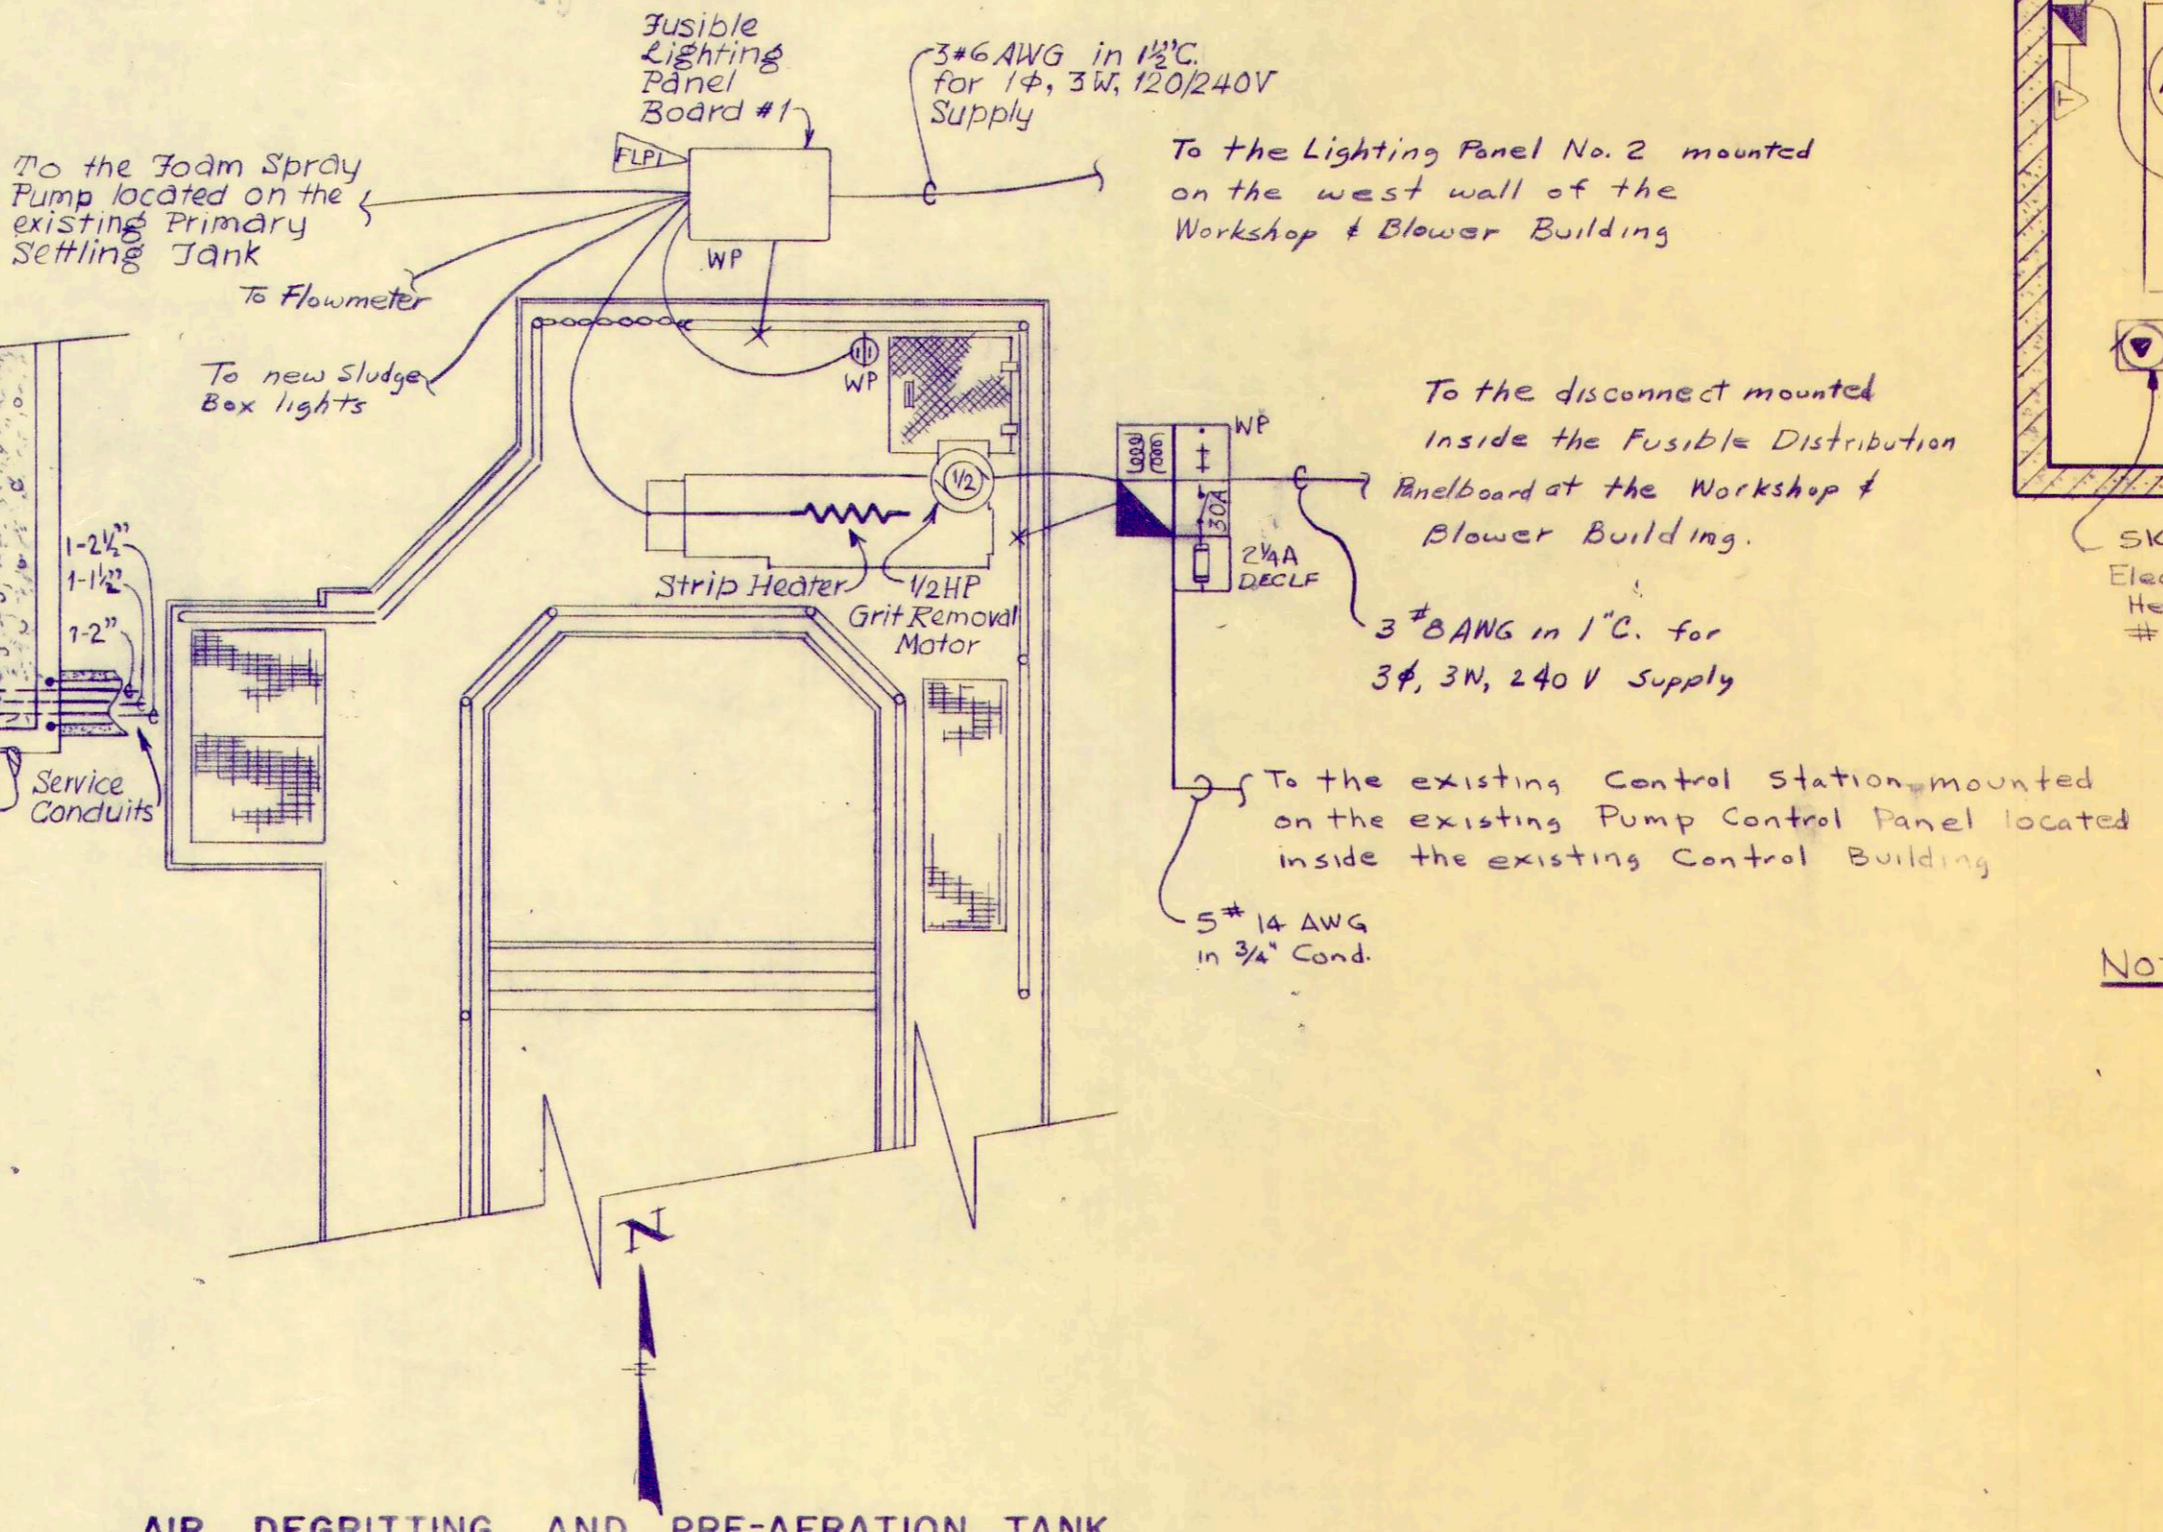 Fusible
Lighting
Panel
Board #1
3#6 AWG in 1½"C.
for 1ϕ, 3W, 120/240V
Supply
FLP1
To the Foam Spray
Pump located on the
existing Primary
Settling Tank
To the Lighting Panel No. 2 mounted
on the west wall of the
Workshop & Blower Building
WP
To Flowmeter
To new Sludge
Box lights
WP
WP
To the disconnect mounted
inside the Fusible Distribution
Panelboard at the Workshop &
Blower Building.
1/2
30A
2¼A
DECLF
Strip Heater
1/2HP
Grit Removal
Motor
3 #8 AWG in 1"C. for
3ϕ, 3W, 240 V Supply
1-2½"
1-1½"
1-2"
Service
Conduits
To the existing Control Station mounted
on the existing Pump Control Panel located
inside the existing Control Building
5 # 14 AWG
in ¾" Cond.
T
#
N
AIR DEGRITTING AND PRE-AERATION TANK